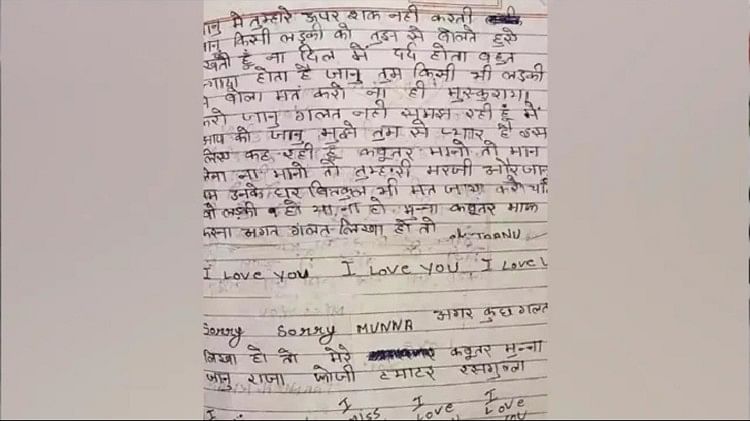 जानु मे तुम्हारे ऊपर शक नही करती
जानु किसी लड़की को तुम से बोलते हुऐ
देखती हूं ना दिल में दर्द होता बहुत
होता है जानु तुम किसी भी लड़की
बोला मत करो नां ही मुस्कुराया
करो जानु गलत नही समझ रही हूं में
आप को जानु मुझे तुम से प्यार है इस
लिए कह रही हूं कबूतर मानो तो मान
लेना ना मानो तो तुम्हारी मरजी और जानु
तुम उनके घर बिलकुल भी मत जाया करो चाहे
वो लड़की हो या ना हो मुन्ना कबूतर माफ
करना अगर गलत लिखा हो तो
I Love you I Love You I Love
Sorry Sorry MUNNA अगर कुछ गलत
लिखा हो तो मेरे कबूतर मुन्ना
जानु राजा जोजी टमाटर रसगुल्ला
I I I
Miss Love Love